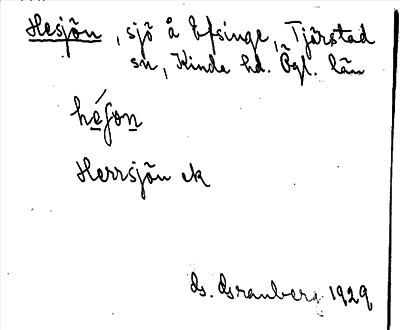 Hesjön, sjö å Efsinge, Tjärstad
sn, Kinda hd. Ögl. län
héʃon
Herrsjön ek
G. Granberg 1929